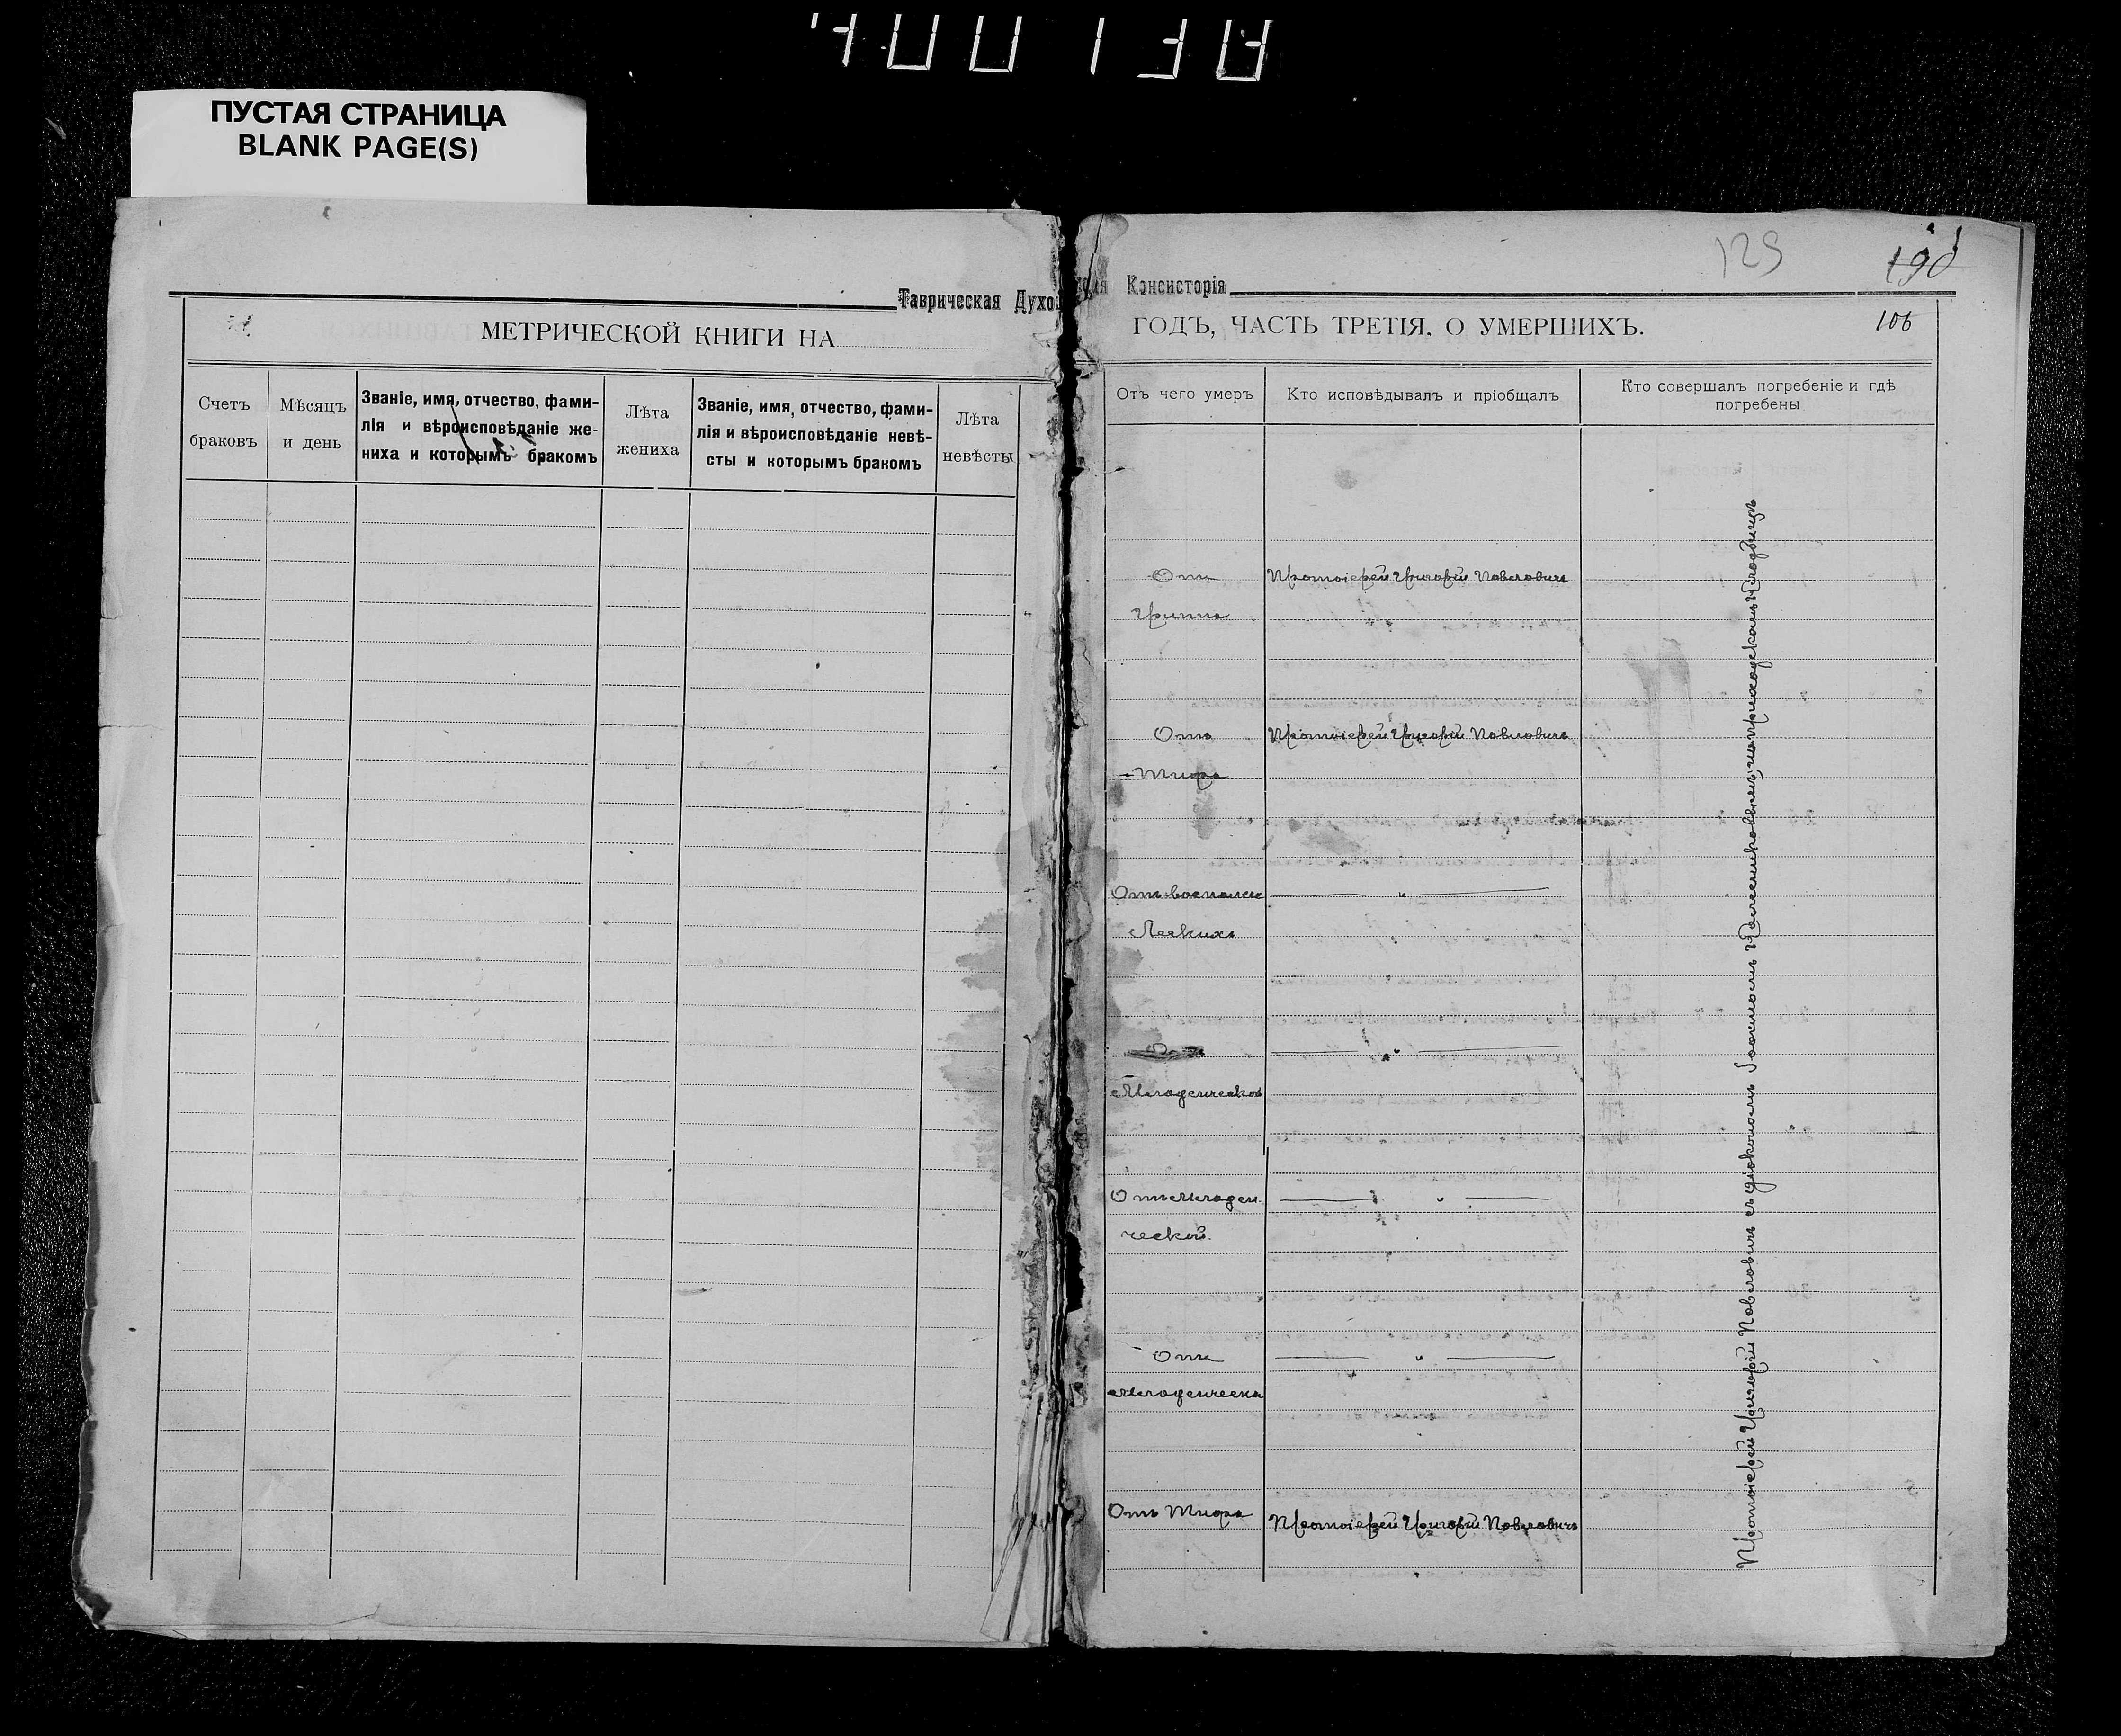 ПУСТАЯ СТРАНИЦА
BLANK PAGE(S)
Таврическая Духо
МЕТРИЧЕСКОЙ КНИГИ НА
Счетъ браковъ
Мѣсяцъ и день
Званіе, имя, отчество, фами-
лія и вѣроисповѣданіе же-
ниха и которымъ бракомъ
Лѣта жениха
Званіе, имя, отчество, фами-
лія и вѣроисповѣданіе невѣ-
сты и которымъ бракомъ
Лѣта невѣсты
129
190
Консисторія
ГОДЪ, ЧАСТЬ ТРЕТІЯ, О УМЕРШИХЪ.
106
Отъ чего умеръ
Кто исповѣдывалъ и пріобщалъ
Кто совершалъ погребеніе и гдѣ
погребены
Отъ Протоіерей Григорій Павловичъ
Гриппа
Отъ Протоіерей Григорій Павловичъ
Тифа
Отъ воспален
Легкихъ
Младенческой
Отъ Младен
ческой.
Отъ
Младенческ
Отъ Тифа Протоіерей Григорій Павловичъ
Протоіерей Григорій Павловичъ съ діакономъ на приходскомъ кладбищѣ